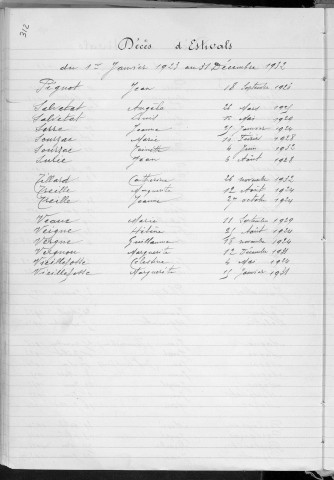 312
Décès d'Estivals
du 1er Janvier 1923 au 31 Décembre 1932
Pégnot Jean 18 Septembre 1923
Salvetat Angèle 26 Mars
Salvetat Louis 10 Mai 1929
Serre Jeanne 21 Janvier 1924
Soursac Marie 14 Février 1928
Soursac 4 Juin 1932
Sulie Jean 3 Août 1928
Tillard Catherine 26 novembre 1932
Treille Marguerite 12 Août 1924
Treille Jeanne 27 octobre 1924
Veaux Marie 11 Septembre 1929
Veigne Hélène 21 Août 1924
Vergne Guillaume 18 novembre 1924
Vergnou Marguerite 12 Décembre 1931
Vieillefosse Célestine 4 Mai 1924
Vieillefosse Marguerite 15 Janvier 1931